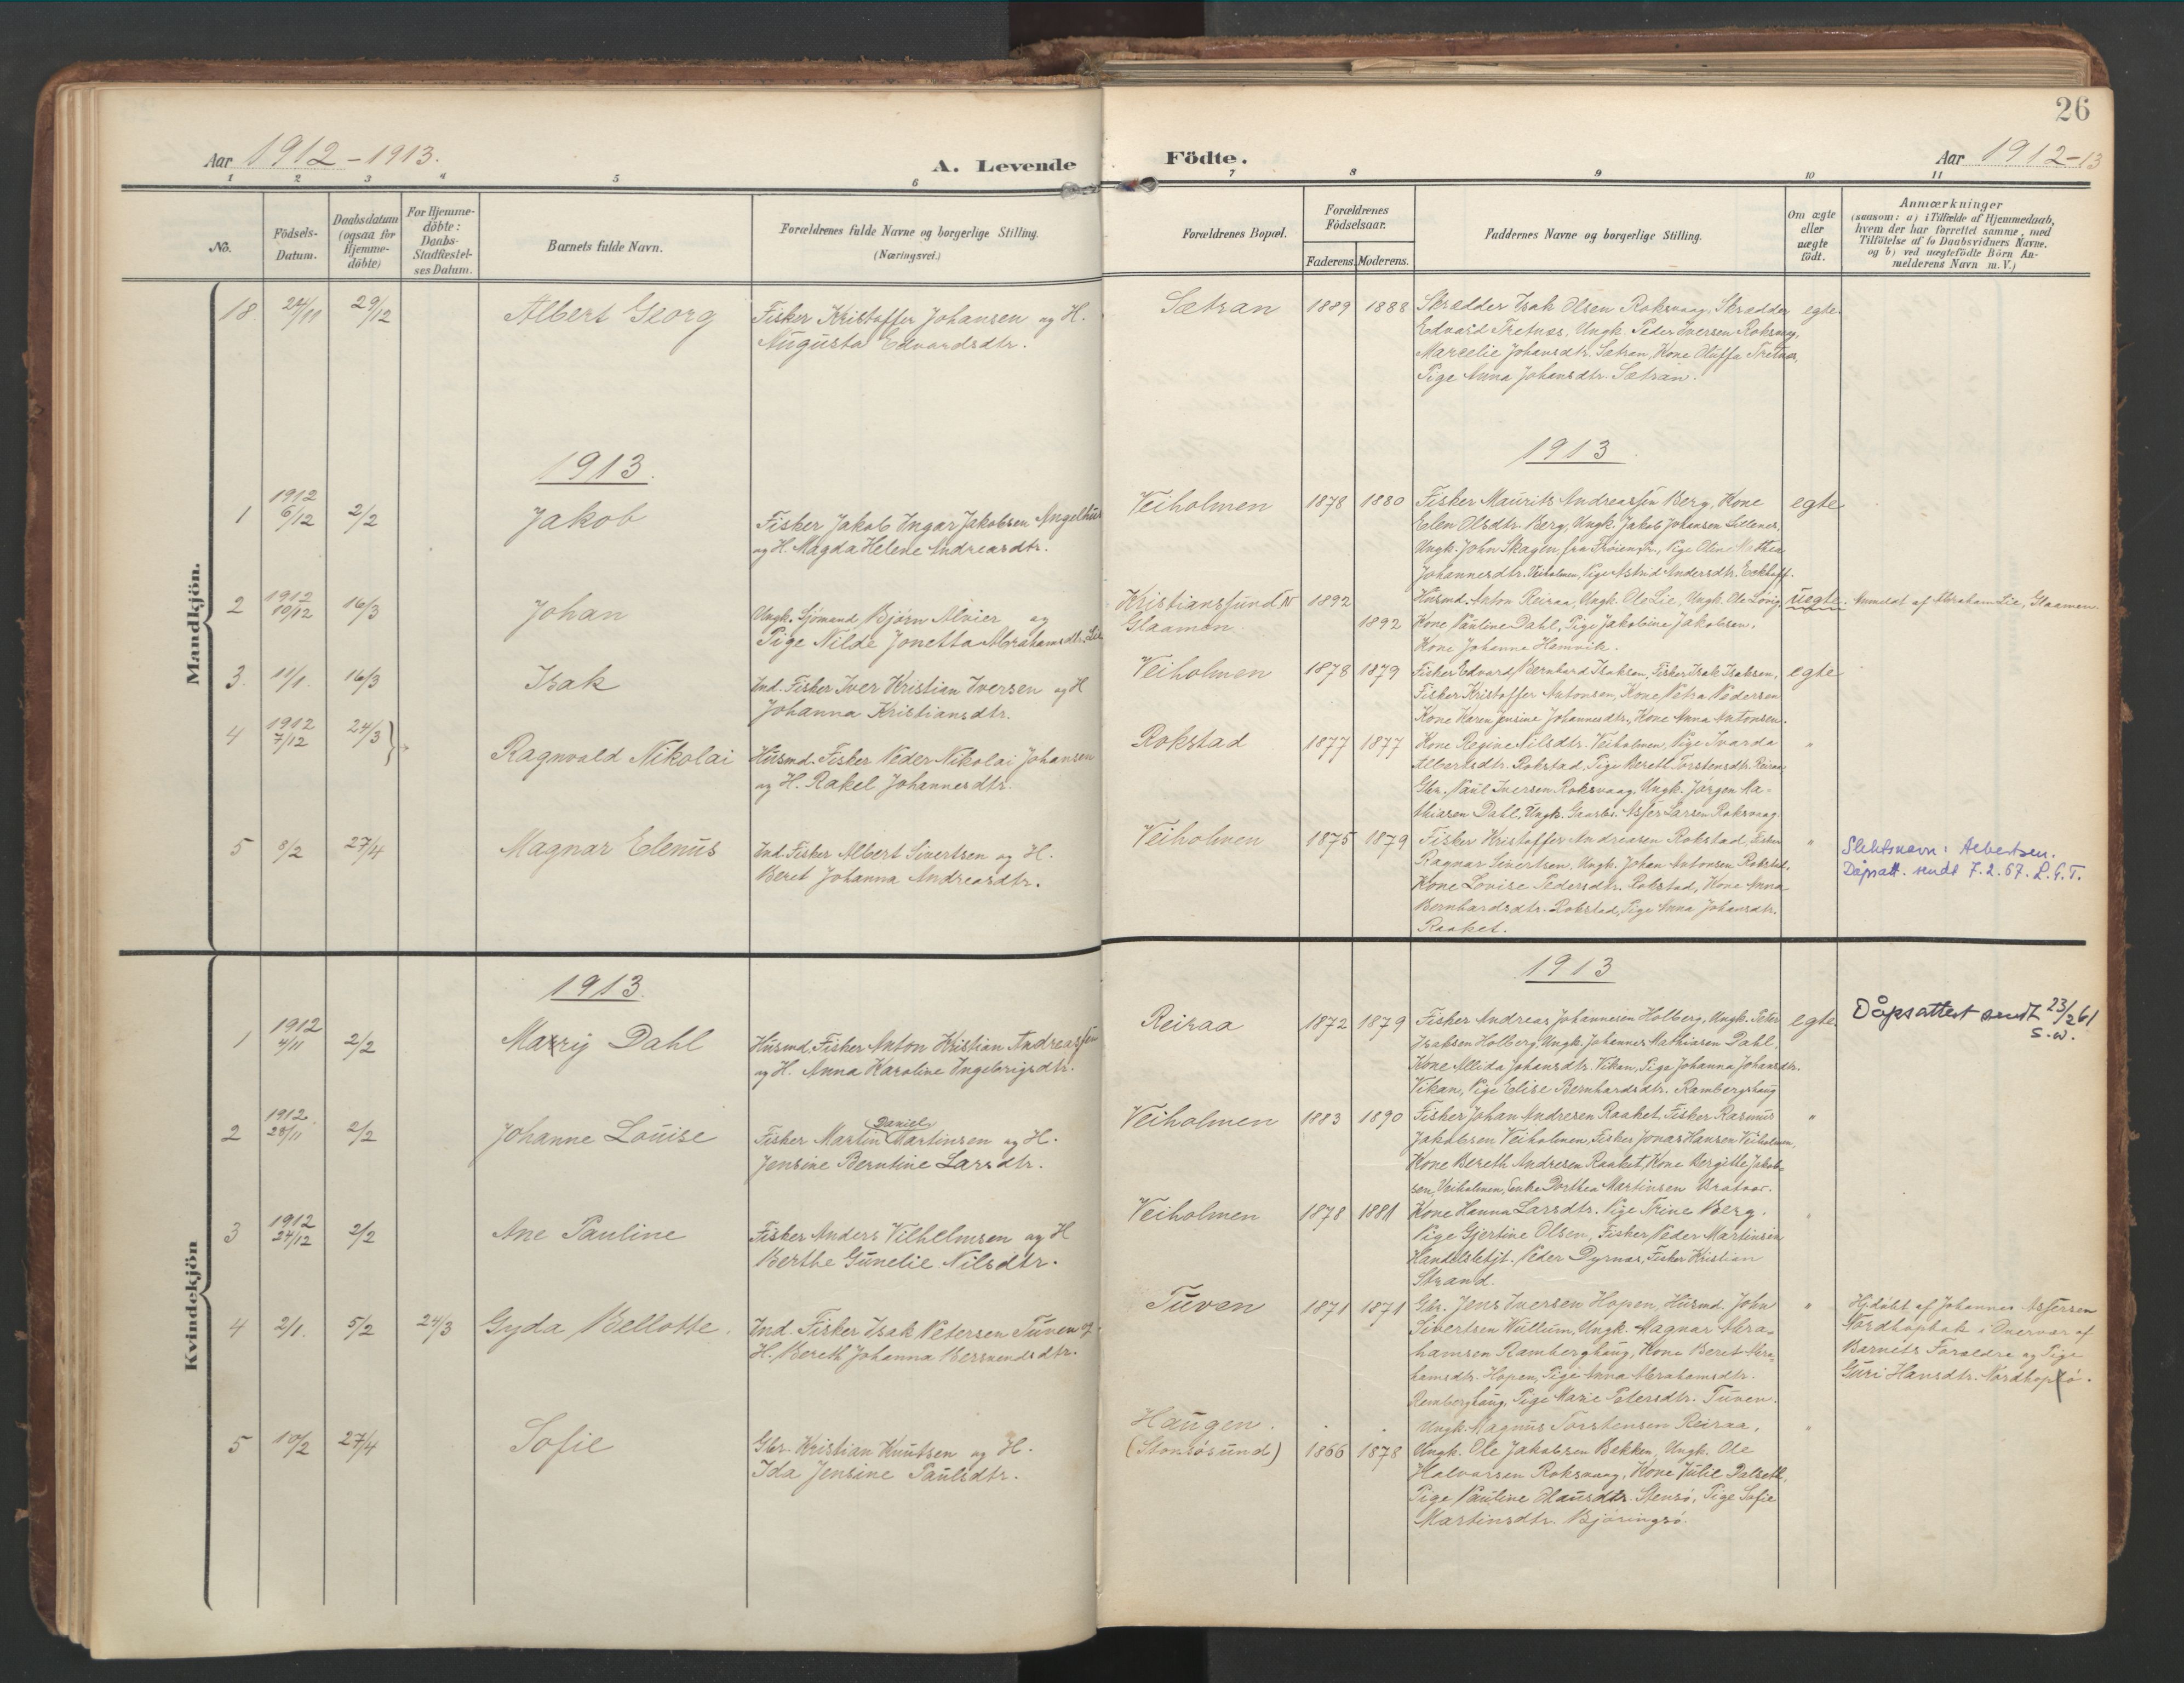 26
Aar 1912-1913.
A. Levende
Fødte.
Aar 1912-13
1 2 3 4 5 6 7 8 9 10 11
No.
Födsels-
Datum.
Daabsdatum
(ogsaa for
Hjemme-
döbte)
For Hjemme-
döbte:
Daabs-
Stadfæstel-
ses Datum.
Barnets fulde Navn.
Forældrenes fulde Navne og borgerlige Stilling.
(Næringsvei.)
Forældrenes Bopæl.
Forældrenes
Födselsaar.
Faderens. Moderens.
Faddernes Navne og borgerlige Stilling.
Om ægte
eller
uægte
födt.
Anmærkninger
(saasom: a) i Tilfælde af Hjemmedaab,
hvem der har forrettet samme, med
Tilföielse af to Daabsvidners Navne.
og b) ved uægtefödte Börn An-
melderens Navn m. V.)
Mandkjön.
18 24/11 29/12 Albert Georg
Fisker Kristoffer Johansen og H.
Augusta Edvardsdtr.
Sætran 1889 1888
Skrædder Isak Olsen Roksvaag, Skrædder
Edvard Tretnes, Ungk. Peder Iversen Roksvaag,
Marcelie Johansdtr. Sætran, Kone Tretnes,
Pige Anna Johansdtr. Sætran.
egte.
1913.
1913
1 1912 6/12 2/2 Jakob
Fisker Jakob Ingar Jakobsen Angelhus
og H. Magda Helene Andreasdtr.
Veiholmen 1878 1880
Fisker Maurits Andreassen Berg, Kone
Elen Olsdtr. Berg, Ungk. Jakob Johansen
Ungk. John Skagen, fra Pige Oline Mathea
Johannesdtr. Veiholmen, Pige Astrid Andersdtr. Eckhoff.
egte
2 1912 10/12 16/3 Johan
Ungk. Sjömand Björn Alvier og
Pige Nilde Jonetta Abrahamsdtr. Lie
Kristiansund N 1892
Glaamen 1892
Husmd. Anton Reiraa, Ungk. Ole Lie, Ungk. Ole
Kone Pauline Dahl, Pige Jakobine Jakobsen,
Kone Johanna Hamvik.
uegte.
Anmeldt af Abraham Lie, Glaamen.
3. 11/1. 16/3 Isak
Ind. Fisker Iver Kristian Iversen og H
Johanna Kristiansdtr.
Veiholmen 1878 1879
Fisker Edvard Bernhard Isaksen, Fisker Isak Isaksen,
Fisker Kristoffer Antonsen, Kone Petra Pedersen
Kone Karen Jensine Johannesdtr., Kone Anna Antonsen.
egte
4 1912 7/12 24/3 Ragnvald Nikolai
Husmd. Fisker Peder Nikolai Johansen
og H. Rakel Johannesdtr.
Rokstad 1877 1877
Kone Regine Nilsdtr. Veiholmen, Pige Ivarda
Albertsdtr. Rokstad, Pige Bereth Torstensdtr. Reiraa
Gbr. Paul Iversen Roksvaag, Ungk. Jörgen Ma-
thiasen Dahl, Ungk. Gaarbr. Asfer Larsen Roksvaag
"
5 8/2 27/4 Magnar Edenus
Ind. Fisker Albert Sivertsen og H.
Beret Johanna Andreasdtr.
Veiholmen 1875 1879
Fisker Kristoffer Andreasen Rokstad, Fisker
Ragnar Sivertsen, Ungk. Johan Antonsen Rokstad,
Kone Lovise Pedersdtr. Rokstad, Kone Anna
Bernhardsdtr. Rokstad, Pige Anna Johansdtr.
Raaket.
"
Slektsnavn: Albertsen.
Dåpsatt. sendt 7.2.67. L.G.T.
Kvindekjön
1913.
1913
1 1912 4/11 2/2 Marrig Dahl
Husmd. Fisker Anton Kristian Andreassen
og H. Anna Karoline Ingebrigtsdtr.
Reiraa 1872 1879
Fisker Andreas Johannesen Holberg, Ungk. Peter
Isaksen Holberg, Ungk. Johannes Mathiasen Dahl,
Kone Allida Johansdtr. Vikan, Pige Johanna Johansdtr.
Vikan, Pige Elise Bernhardsdtr. Ramberghaug
egte.
Dåpsattest sendt 23/2 61
S.W.
2 1912. 28/11 2/2 Johanne Louise
Fisker Martin Daniel Martinsen og H.
Jensine Berntine Larsdtr.
Veiholmen 1883 1890
Fisker Johan Andresen Raaket, Fisker Rasmus
Jakobsen Veiholmen, Fisker Jonas Hansen Veiholmen,
Kone Bereth Andresen Raaket, Kone Bergitte Jakob-
sen, Veiholmen, Enke Dorthea Martinsen Bratvær.
"
3 1912 24/12 2/2 Ane Pauline
Fisker Anders Vilhelmsen og H
Berthe Gunelie Nilsdtr.
Veiholmen 1878 1881
Kone Hanna Larsdtr. Pige Trine Berg.
Pige Gjertine Olsen, Fisker Peder Martinsen
Handelsbetjt. Peder Dyrnæs, Fisker Kristian
Strand.
"
4 2/1. 5/2 24/3 Gyda Bellotte.
Ind. Fisker Isak Petersen Tuven og
H. Bereth Johanna Bersvendsdtr.
Tuven 1871 1871
Gbr. Jens Iversen Hopen, Husmd. John
Sivertsen Wullum, Ungk. Magnar Abra-
hamsen Ramberghaug, Kone Beret Abra-
hamsdtr. Hopen, Pige Anna Abrahamsdtr.
Ramberghaug, Pige Marie Petersdtr. Tuven.
"
Hj.döbt af Johannes Asfersen
Nordhopbak i Overvær af
Barnets Forældre og Pige
Guri Hansdtr. Nordhopsö.
5 10/2 27/4 Sofie
Gbr. Kristian Knutsen og H.
Ida Jensine Paulsdtr.
Haugen.
(Stensösund) 1866 1878
Ungk. Magnus Torstensen Reiraa,
Ungk. Ole Jakobsen Bakken, Ungk. Ole
Halvorsen Roksvaag, Kone Julie Dalseth,
Pige Pauline Olausdtr. Stensö, Pige Sofie
Martinsdtr. Björingsö.
"